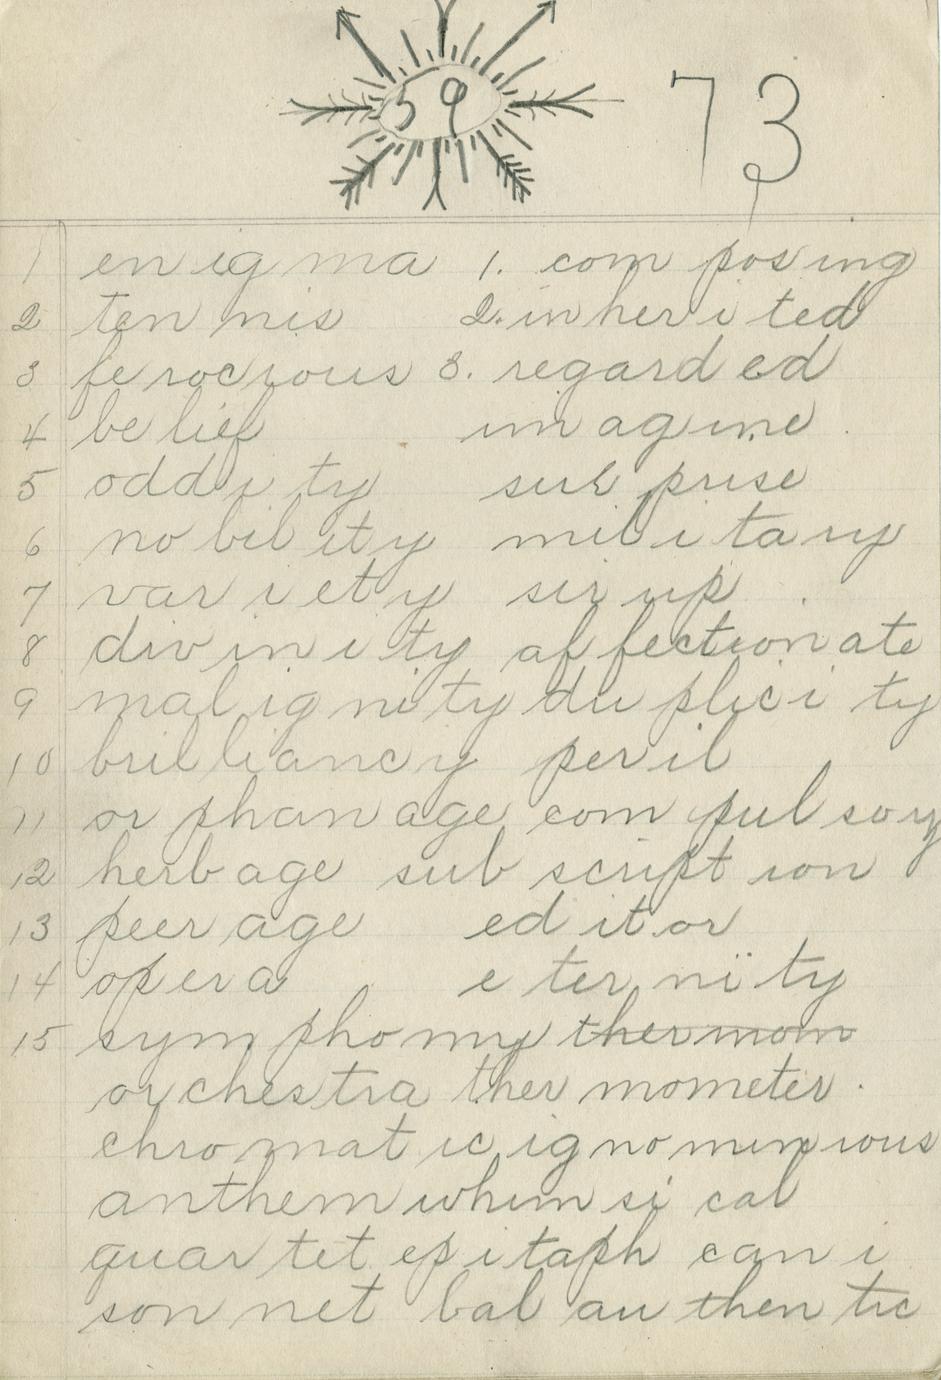 59 73
1 en ig ma 1. com pos ing
2 ten nis 2. in her i ted
3 fe rocious 3. regard ed
4 be lief im ag ine.
5 odd i ty sur prise
6 no bil ity mil i ta ry
7 var i et y sir up.
8 div in i ty af fection ate
9 mal ig ni ty du plic i ty
10 bril liancy per il
11 or phan age com pul sory
12 herb age sub script ion
13 peer age ed it or
14 op er a e ter ni ty
15 sym pho ny thermom
or chestra ther mometer.
chro mat ic ig no min ious
anthem whim si cal
quar tet ep i taph can i
son net bal au then tic